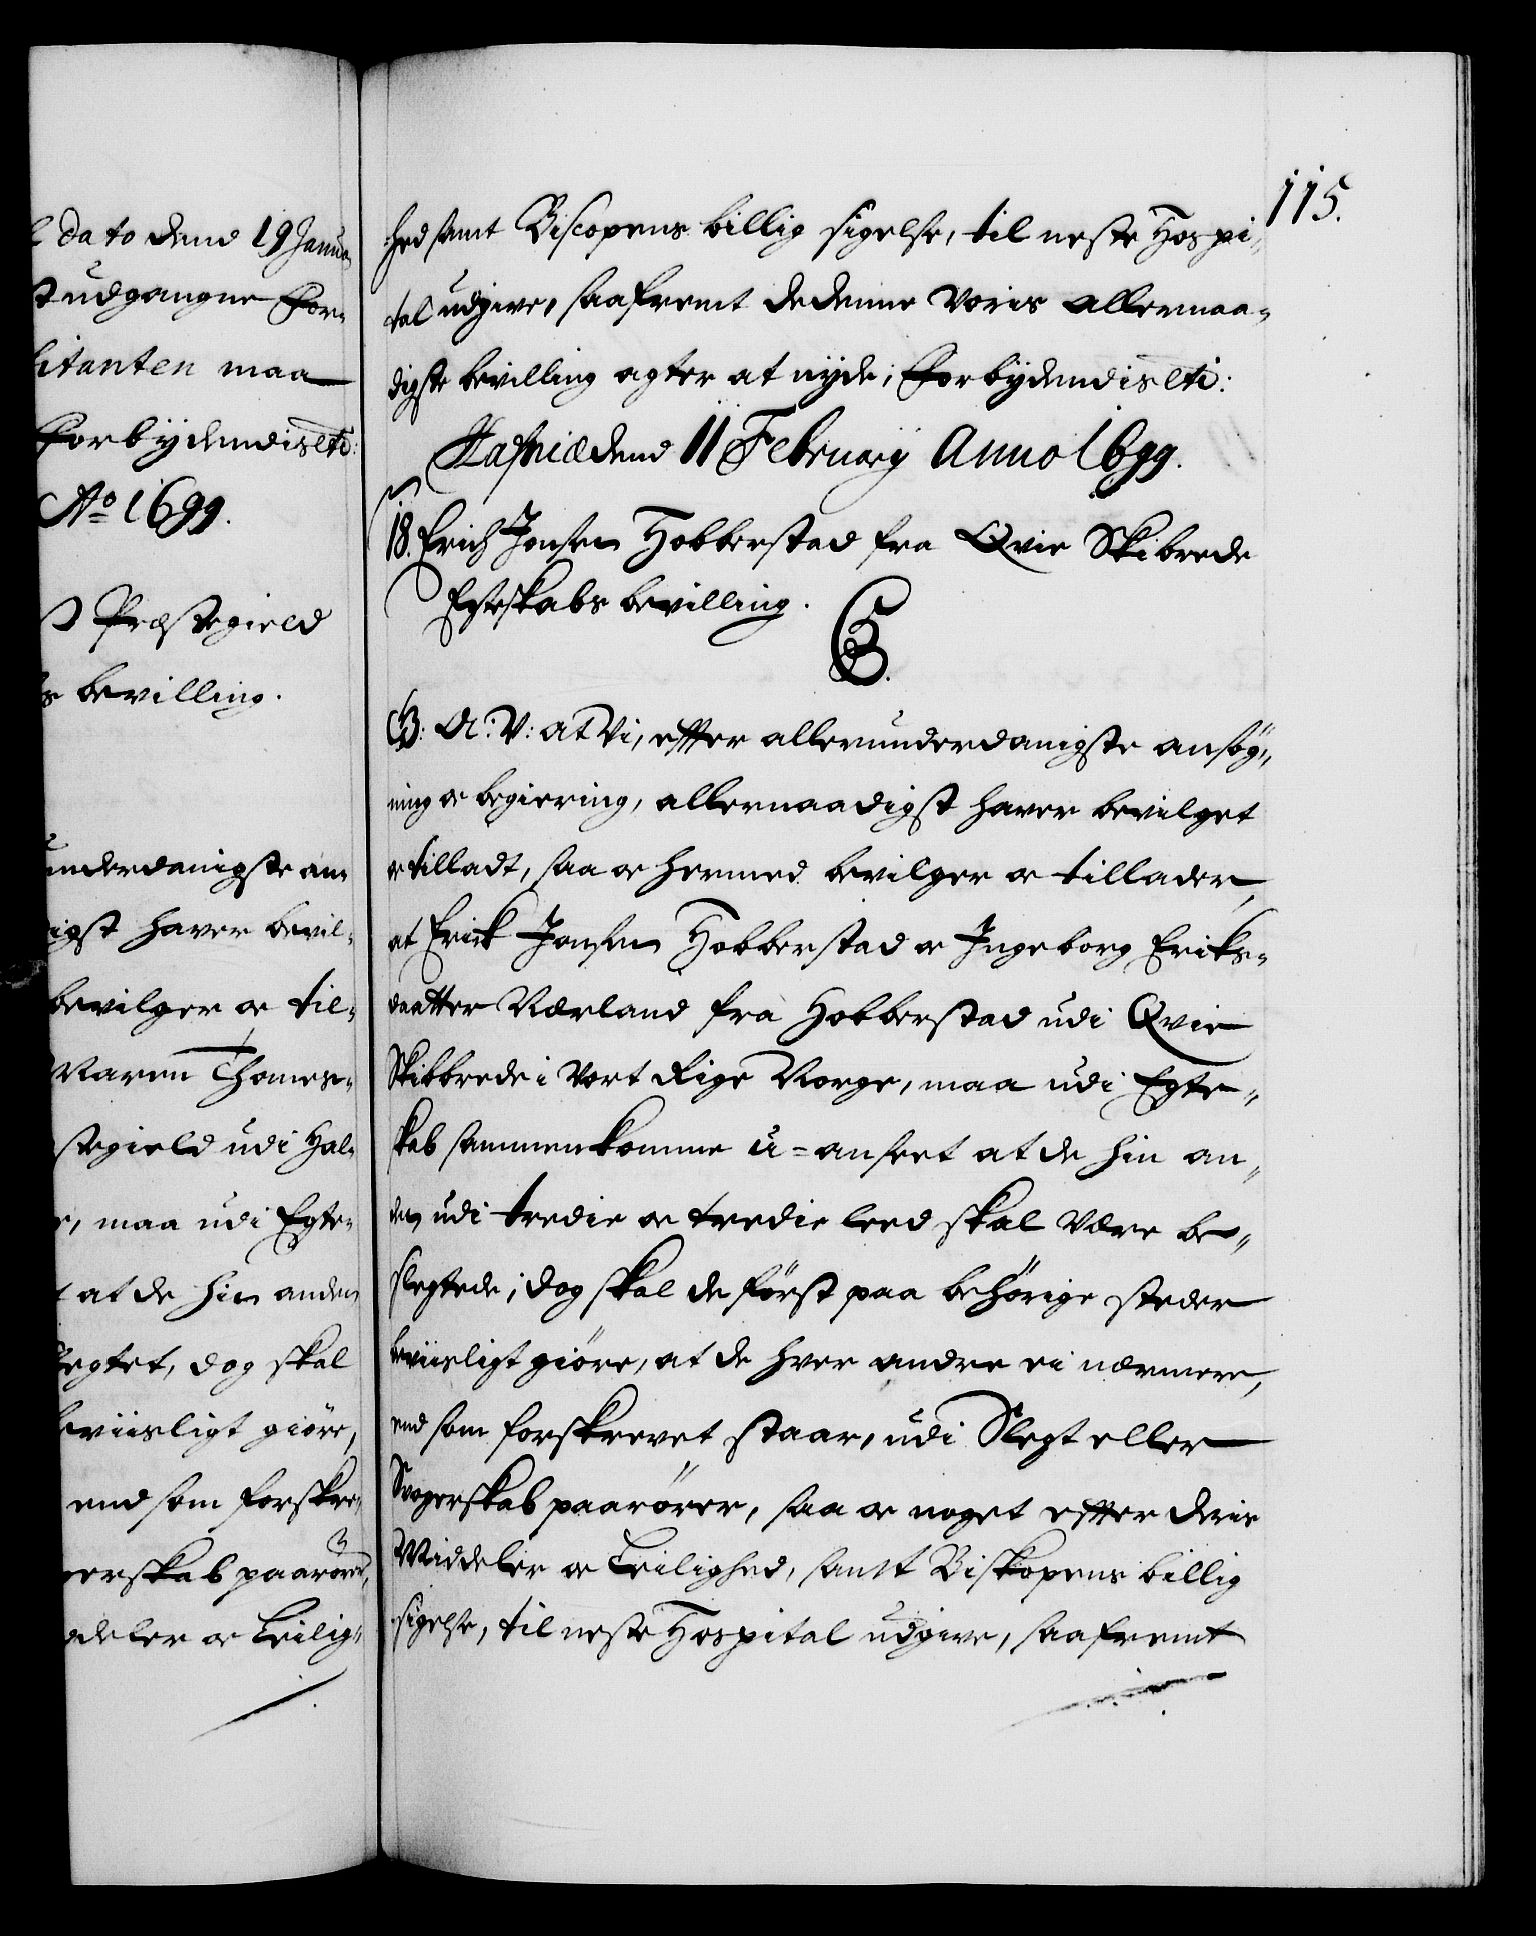 l dato dend 19 Janua
st udgangne For-
litanten maa
Forbydendis etc:
Ao 1699.
Præstegield
s bevilling.
underdanigste an-
digst haver bevil-
bevilger oc til-
Maren Thomes-
stegield udi Hal-
e, maa udi Egte-
t at de hin anden
legtet, dog skal
beviisligt giöre,
end som forskre-
gerskab paarörer,
ddeler oc Leilig-
115.
hed samt Biscopens billig sigelse, til neste Hospi-
tal udgive, saafremt de denne Voris allernaa-
digste bevilling agter at nyde; Forbydendis etc:
Hafniæ dend 11 February Anno 1699.
18. Erich Jonsen Hobberstad fra Qvie Skibrede
Egteskabs bevilling.
C5.
C5: A: V: at Vi, effter allerunderdanigste ansög-
ning oc begiering, allernaadigst haver bevilget
oc tilladt, saa oc hermed bevilger oc tillader,
at Erick Jonsen Hobberstad oc Ingeborg Eriks-
daatter Nærland fra Hobberstad udi Qvie
Skibbrede i Vort Rige Norge, maa udi Egte-
skab sammenkomme u-anseet at de hin an-
den udi tredie oc tredie leed skal være be-
slegtede; dog skal de först paa behörige steder
beviisligt giöre, at de hver andre ei nærmere,
end som forskrevet staar, udi Slegt eller
Svogerskab paarörer, saa oc noget effter deris
Middeler oc Leilighed, samt Biskopens billig
sigelse, til neste Hospital udgive, saafremt